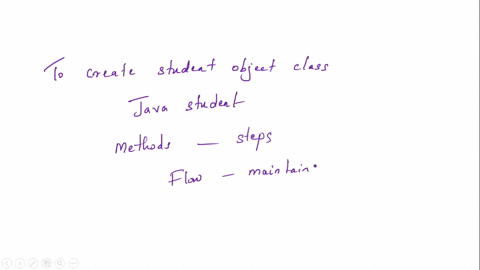 To create student object class
Java student
Methods — steps
Flow — maintain